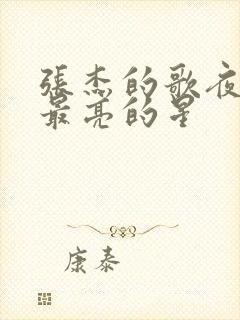 張杰的歌夜
最亮的星
康泰